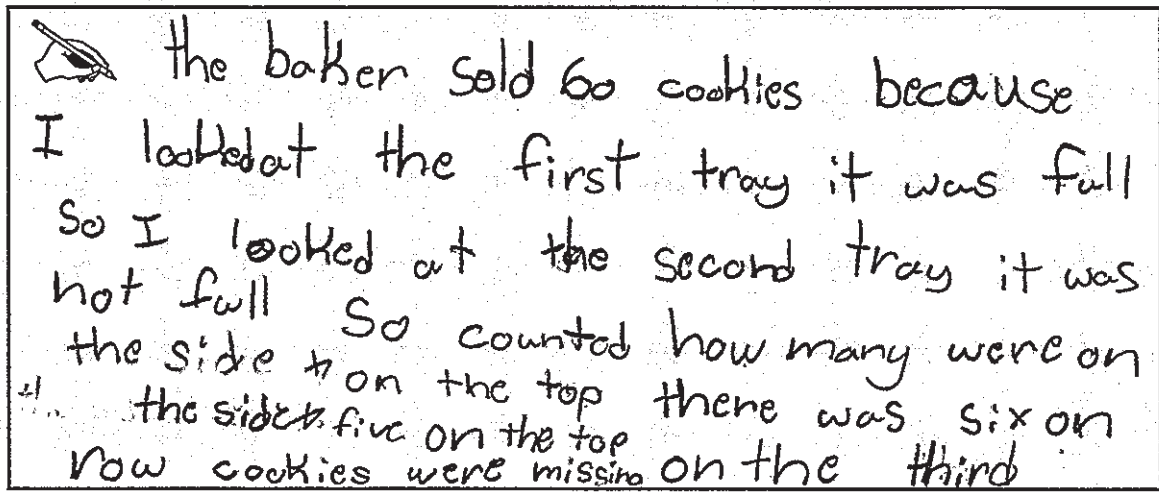 the baker sold 60 cookies because
I lookedat the first tray it was full
So I looked at the second tray it was
not full So counted how many were on
the side & on the top there was six on
the side & five on the top
row cookies were missing on the third